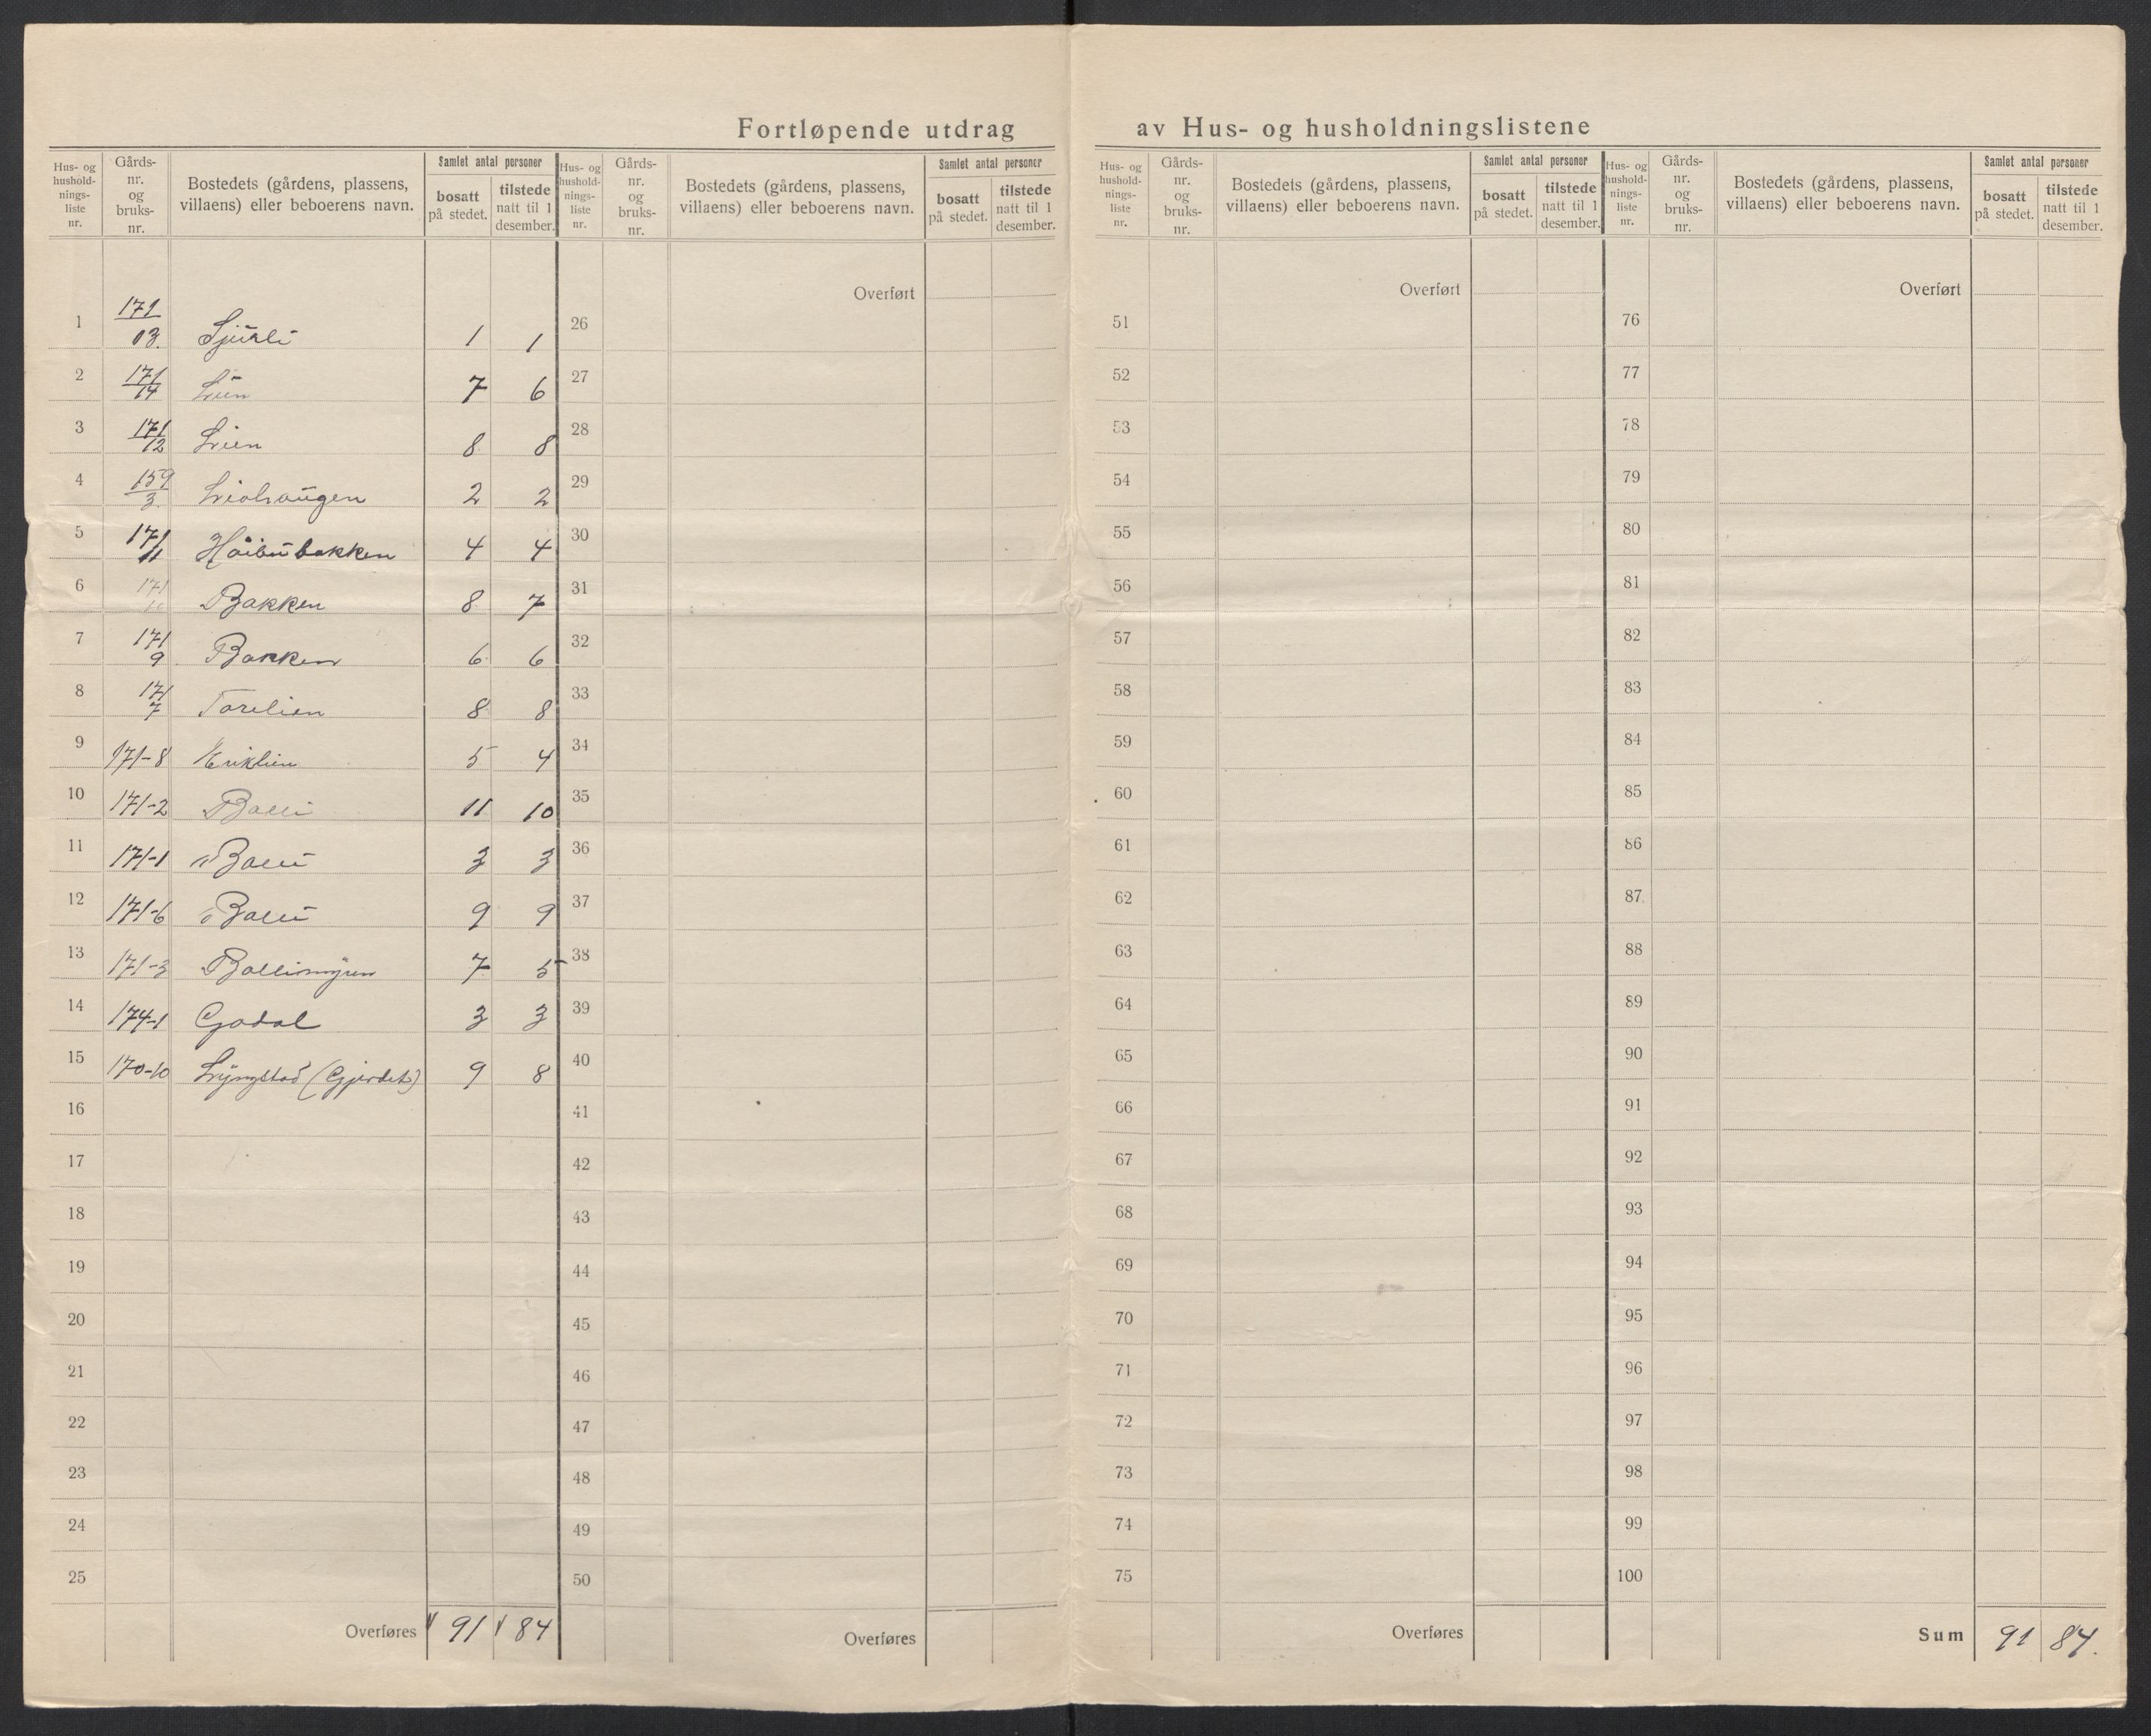 Fortløpende utdrag av Hus- og husholdningslistene
Hus- og husholdnings-liste nr. Gårds-nr. og bruks-nr. Bostedets (gårdens, plassens, villaens) eller beboerens navn. Samlet antal personer bosatt på stedet. tilstede natt til 1 desember.
Hus- og husholdnings-liste nr. Gårds-nr. og bruks-nr. Bostedets (gårdens, plassens, villaens) eller beboerens navn. Samlet antal personer bosatt på stedet. tilstede natt til 1 desember.
Hus- og husholdnings-liste nr. Gårds-nr. og bruks-nr. Bostedets (gårdens, plassens, villaens) eller beboerens navn. Samlet antal personer bosatt på stedet. tilstede natt til 1 desember.
Hus- og husholdnings-liste nr. Gårds-nr. og bruks-nr. Bostedets (gårdens, plassens, villaens) eller beboerens navn. Samlet antal personer bosatt på stedet. tilstede natt til 1 desember.
Overført Overført Overført
1 171/13. Sjurli 1 1 26 51 76
2 171/14 Lien 7 6 27 52 77
3 171/12 Lien 8 8 28 53 78
4 159/3. Liahaugen 2 2 29 54 79
5 171/11 Høibubakken 4 4 30 55 80
6 171/10 Bakken 8 7 31 56 81
7 171/9 Bakken 6 6 32 57 82
8 171/7 Torelien 8 8 33 58 83
9 171-8 Eriklien 5 4 34 59 84
10 171-2 Balli 11 10 35 60 85
11 171-1 Balli 3 3 36 61 86
12 171-6 Balli 9 9 37 62 87
13 171-3 Ballimyren 7 5 38 63 88
14 174-1 Gjødal 3 3 39 64 89
15 170-10 Lyngstad (Gjerdet) 9 8 40 65 90
16 41 66 91
17 42 67 92
18 43 68 93
19 44 69 94
20 45 70 95
21 46 71 96
22 47 72 97
23 48 73 98
24 49 74 99
25 50 75 100
Overføres 91 84 Overføres Overføres Sum 91 84.